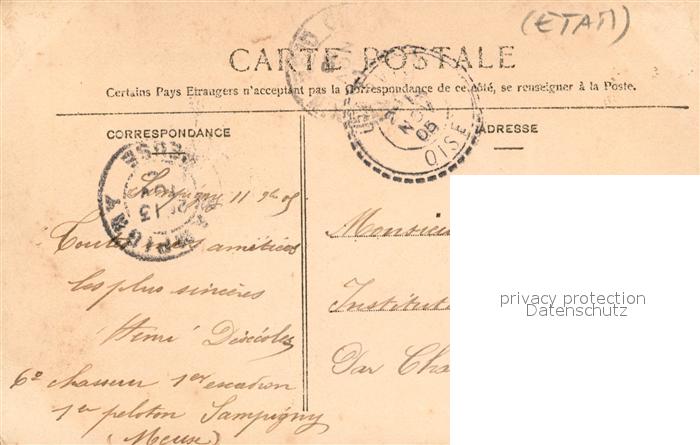 (ETAM)
CARTE POSTALE
Certains Pays Etrangers n'acceptent pas la Correspondance de ce côté, se renseigner à la Poste.
CORRESPONDANCE
ADRESSE
NOV
05
OISE
MEUSE
13
Sampigny 11 9bre 05
Toutes mes amitiées
les plus sincères
Henri
6e chasseur 1er escadron
1er peloton Sampigny
(Meuse)
Monsieur
Institut
Par Cha
privacy protection
Datenschutz